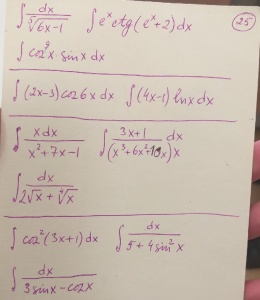 ∫ dx / ⁵√(6x-1)   ∫ eˣ ctg(eˣ+2)dx   25
∫ cos⁹x · sinx dx
∫ (2x-3) cos6x dx   ∫ (4x-1) lnx dx
∫ xdx / (x²+7x-1)   ∫ (3x+1) / (x³+6x²+10x)x dx
∫ dx / (2√x + ⁴√x)
∫ cos²(3x+1)dx   ∫ dx / (5+4sin²x)
∫ dx / (3sinx-cosx)